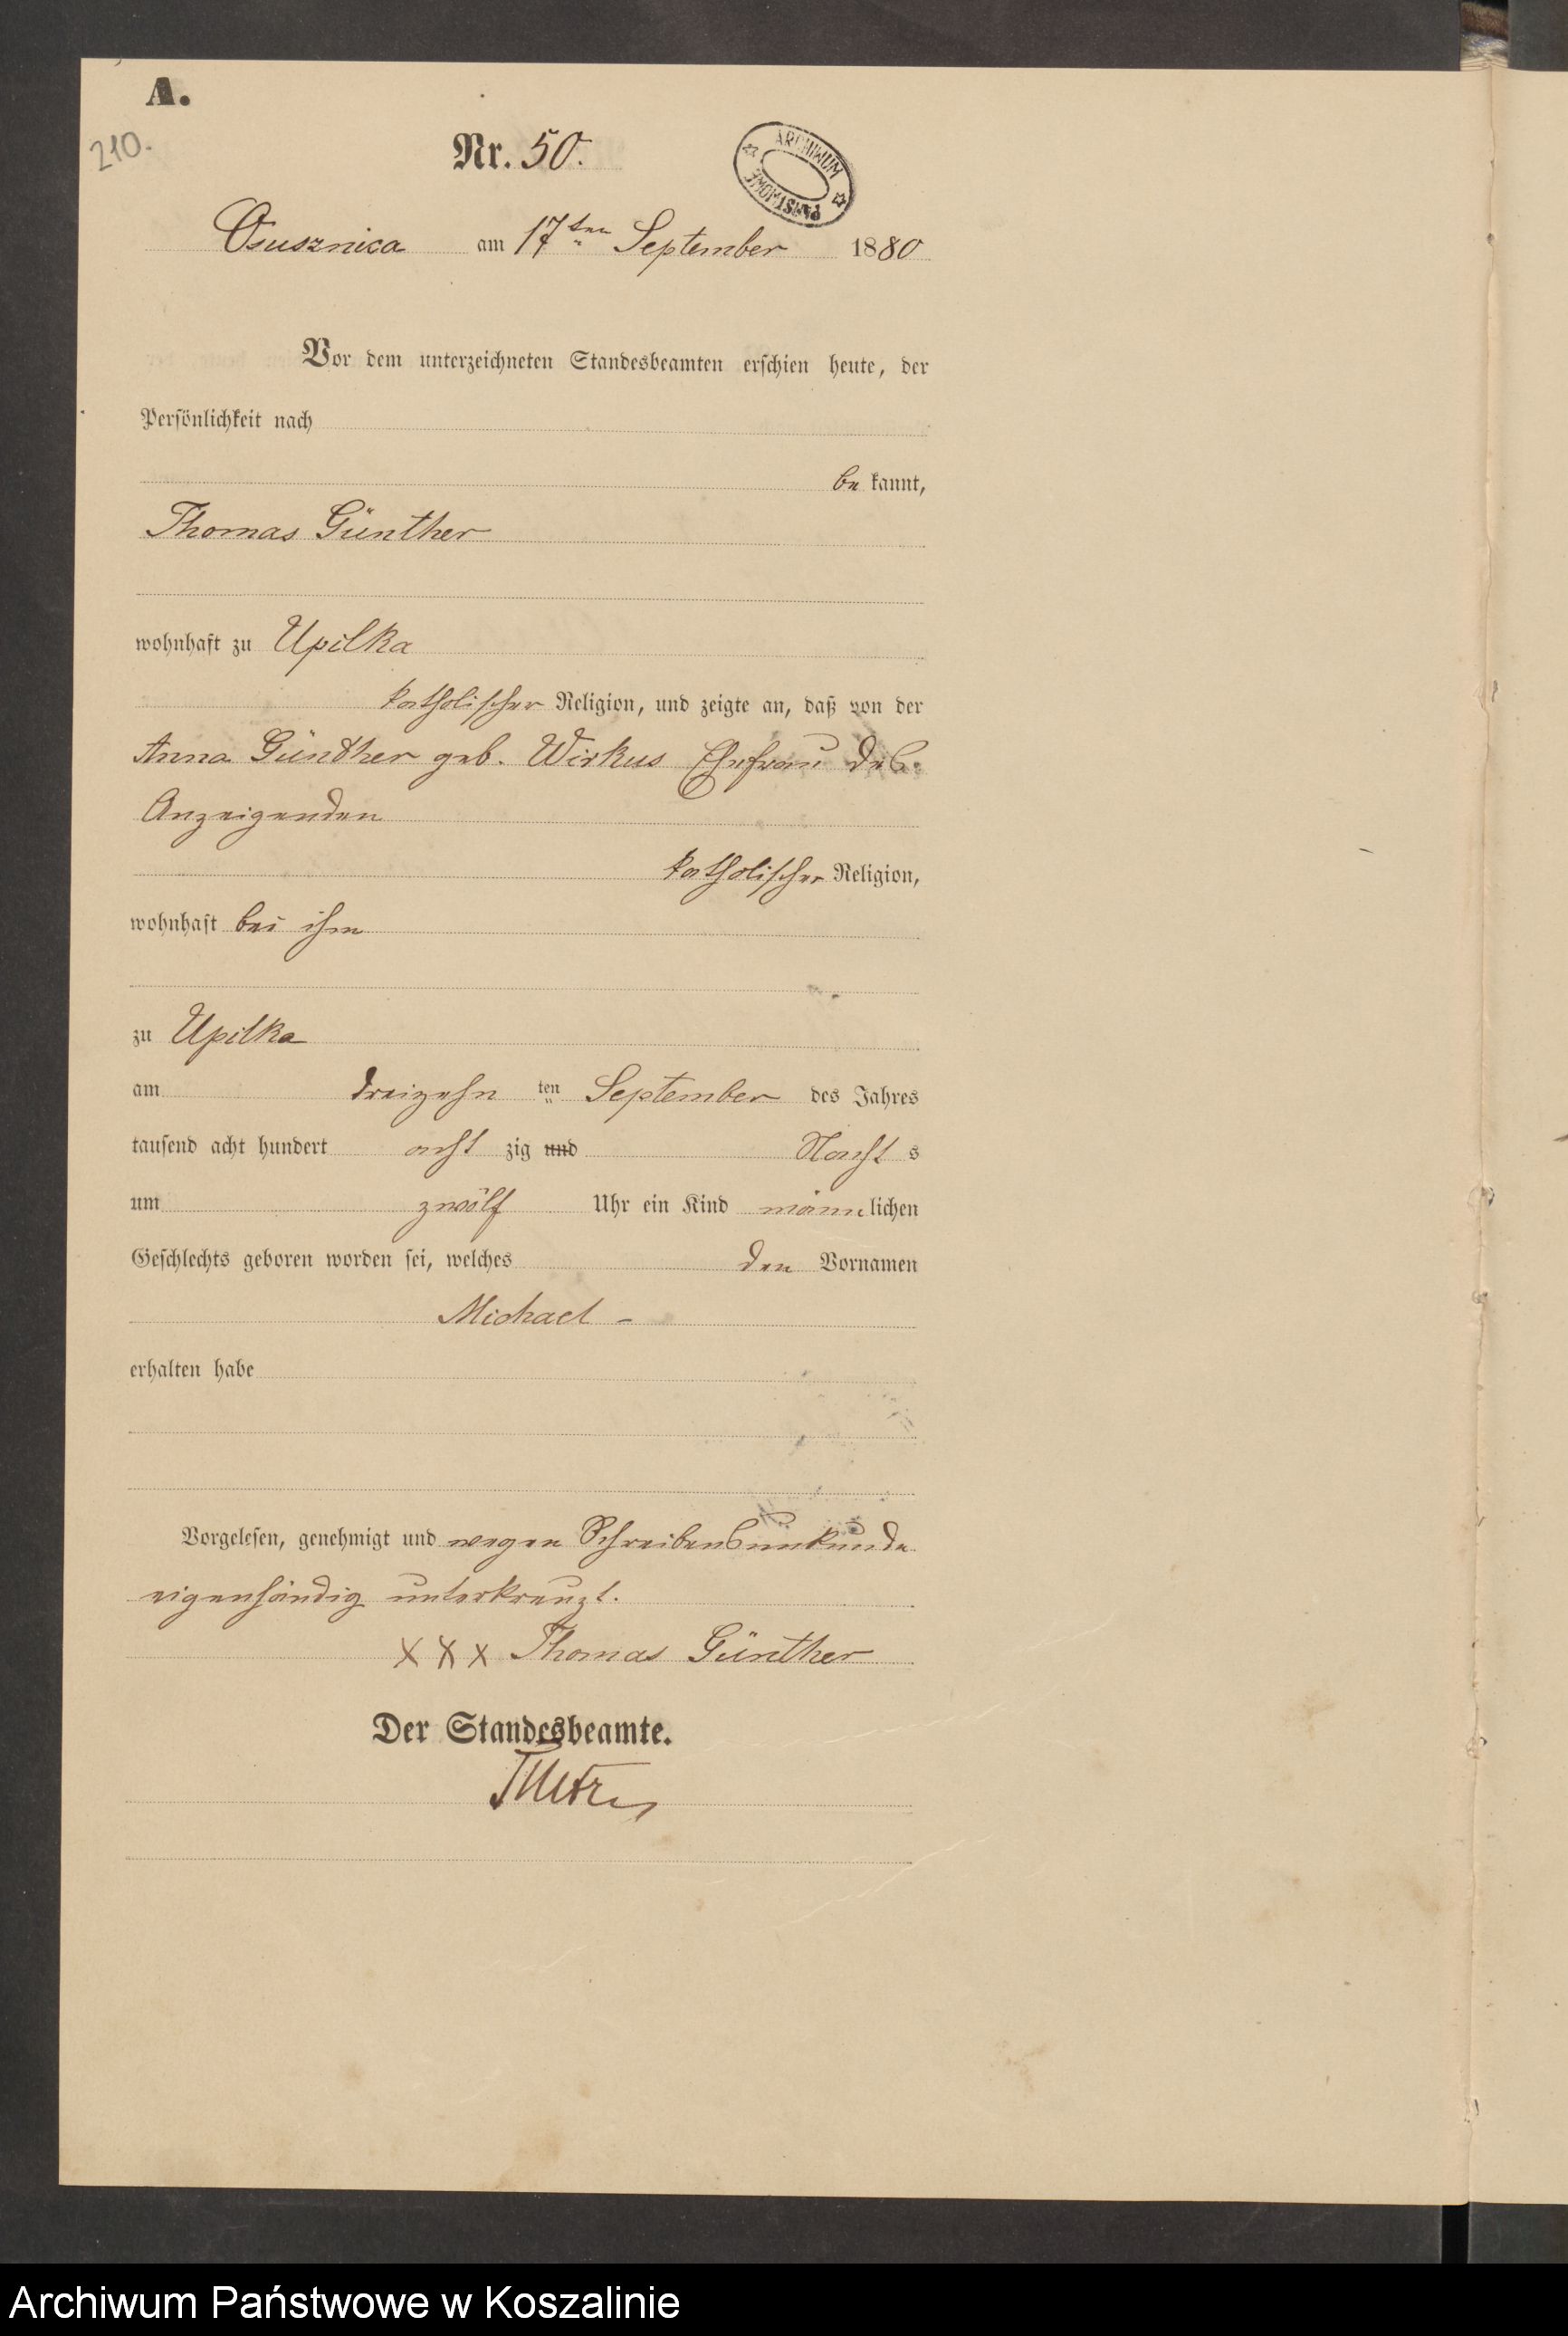 A.
210.
Nr. 50.
ARCHIWUM PAŃSTWOWE
Osusznica am 17ten September 1880
Vor dem unterzeichneten Standesbeamten erschien heute, der
Persönlichkeit nach
be kannt,
Thomas Günther
wohnhaft zu Upilka
katholischer Religion, und zeigte an, daß von der
Anna Günther geb. Wirkus Ehefrau des
Anzeigenden
katholischer Religion,
wohnhaft bei ihm
zu Upilka
am dreizehn ten September des Jahres
tausend acht hundert acht zig und Nacht s
um zwölf Uhr ein Kind männ lichen
Geschlechts geboren worden sei, welches den Vornamen
Michael -
erhalten habe
Vorgelesen, genehmigt und wegen Schreibensunkunde
eigenhändig unterkreuzt.
XXX Thomas Günther
Der Standesbeamte.
Archiwum Państwowe w Koszalinie